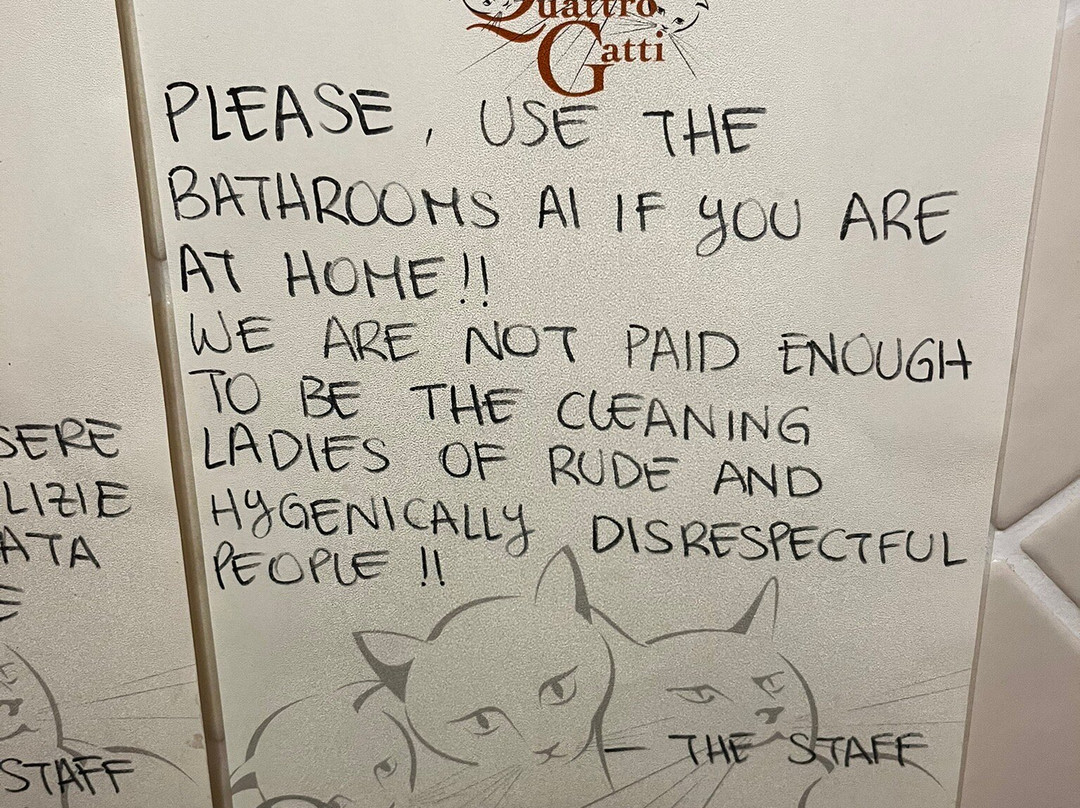 Quattro
Gatti
PLEASE, USE THE
BATHROOMS AI IF YOU ARE
AT HOME!!
WE ARE NOT PAID ENOUGH
TO BE THE CLEANING
LADIES OF RUDE AND
HYGENICALLY DISRESPECTFUL
PEOPLE !!
- THE STAFF
SERE
LIZIE
ATA
E
STAFF